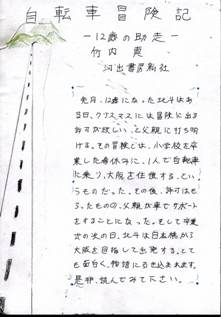 自転車冒険記
－12歳の助走－
竹内 真
河出書房新社
先月、12歳になった北斗はあ
る日、クリスマスには冒険に出る
許可が欲しい、と父親に打ち明
ける。その冒険とは、小学校を卒
業した春休みに、1人で自転車
に乗り、大阪を往復する、とい
うものだった。その後、許可はも
らったものの、父親が車でサポート
をすることになった。そして卒業
式の次の日、北斗は日本橋から
大阪を目指して出発する。とて
も面白く、物語に引き込まれます。
是非、読んでみて下さい。